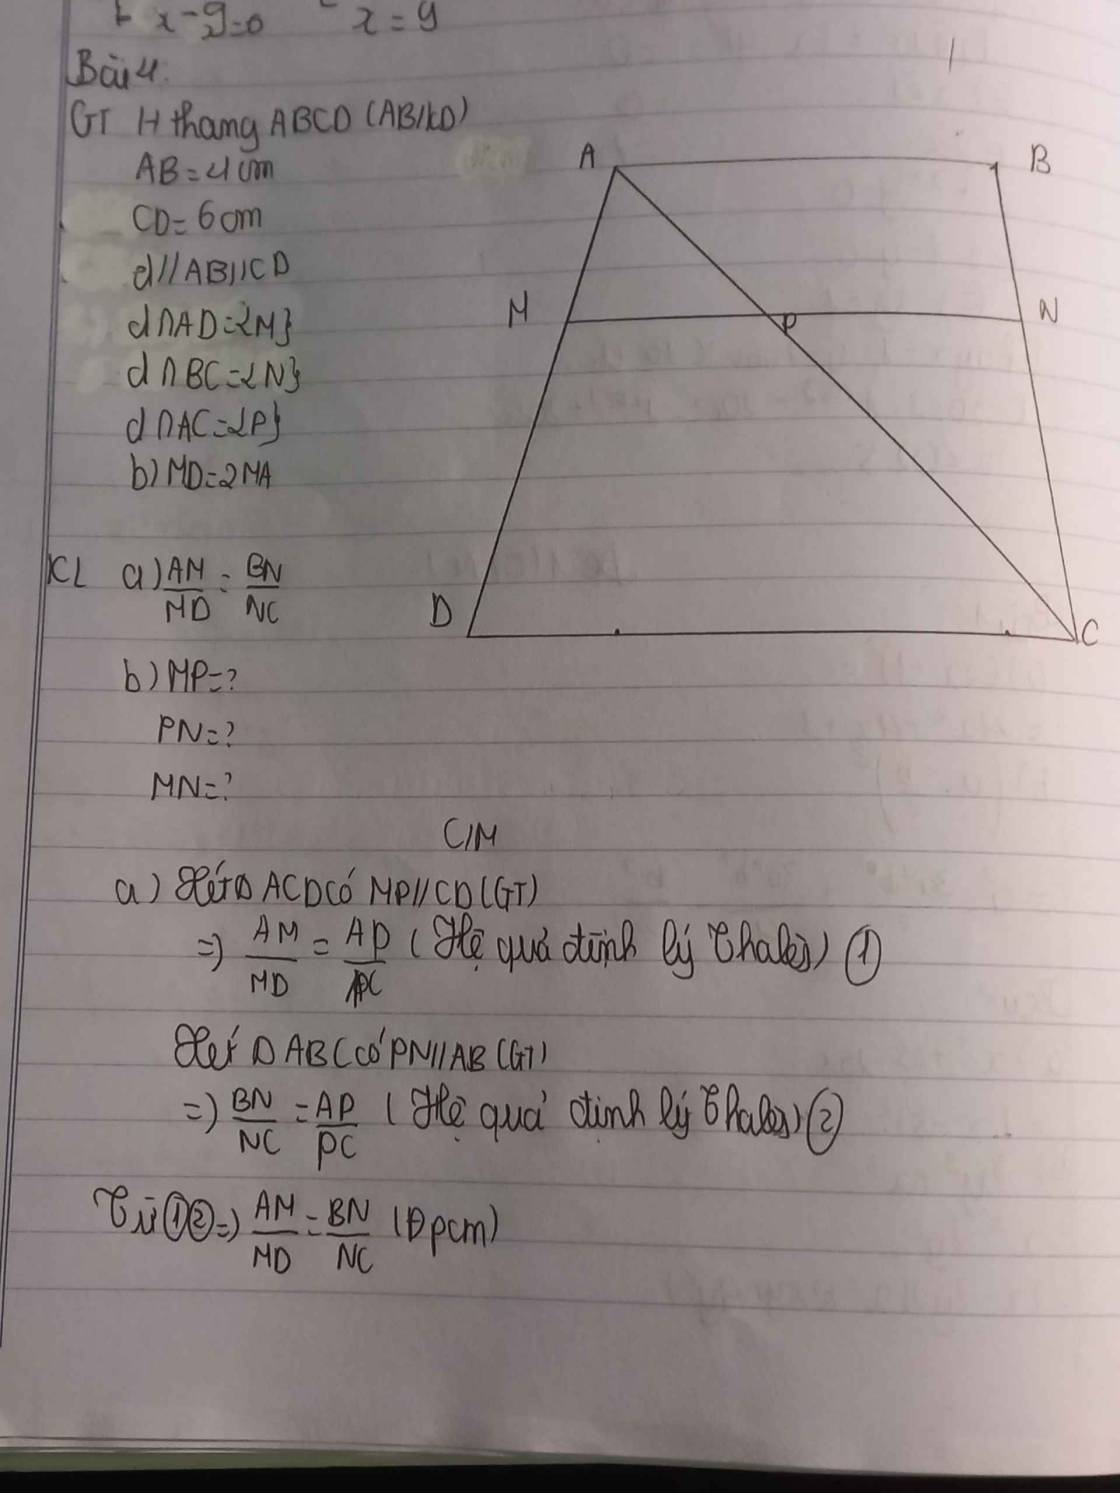 x-y=0 x=y
Bài 4:
GT H thang ABCD (AB//CD)
AB=4cm
CD=6cm
d//AB//CD
d∩AD={M}
d∩BC={N}
d∩AC={P}
b) MD=2MA
KL a) AM/MD = BN/NC
b) MP=?
PN=?
MN=?
A B
M P N
D C
C/M
a) Xét Δ ACD có MP//CD (GT)
=> AM/MD = AP/PC (Hệ quả định lý Thalès) ①
Xét Δ ABC có PN//AB (GT)
=> BN/NC = AP/PC (Hệ quả định lý Thalès) ②
Từ ①② => AM/MD = BN/NC (Đpcm)